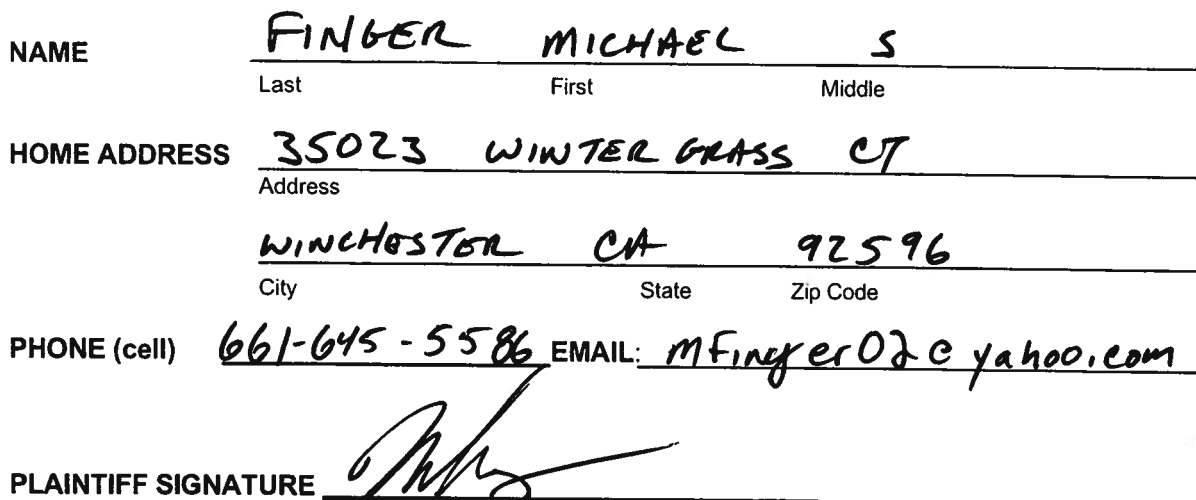 NAME FINGER MICHAEL S
Last First Middle
HOME ADDRESS 35023 WINTER GRASS CT
Address
WINCHESTER CA 92596
City State Zip Code
PHONE (cell) 661-645-5586 EMAIL: mfinger02@yahoo.com
PLAINTIFF SIGNATURE